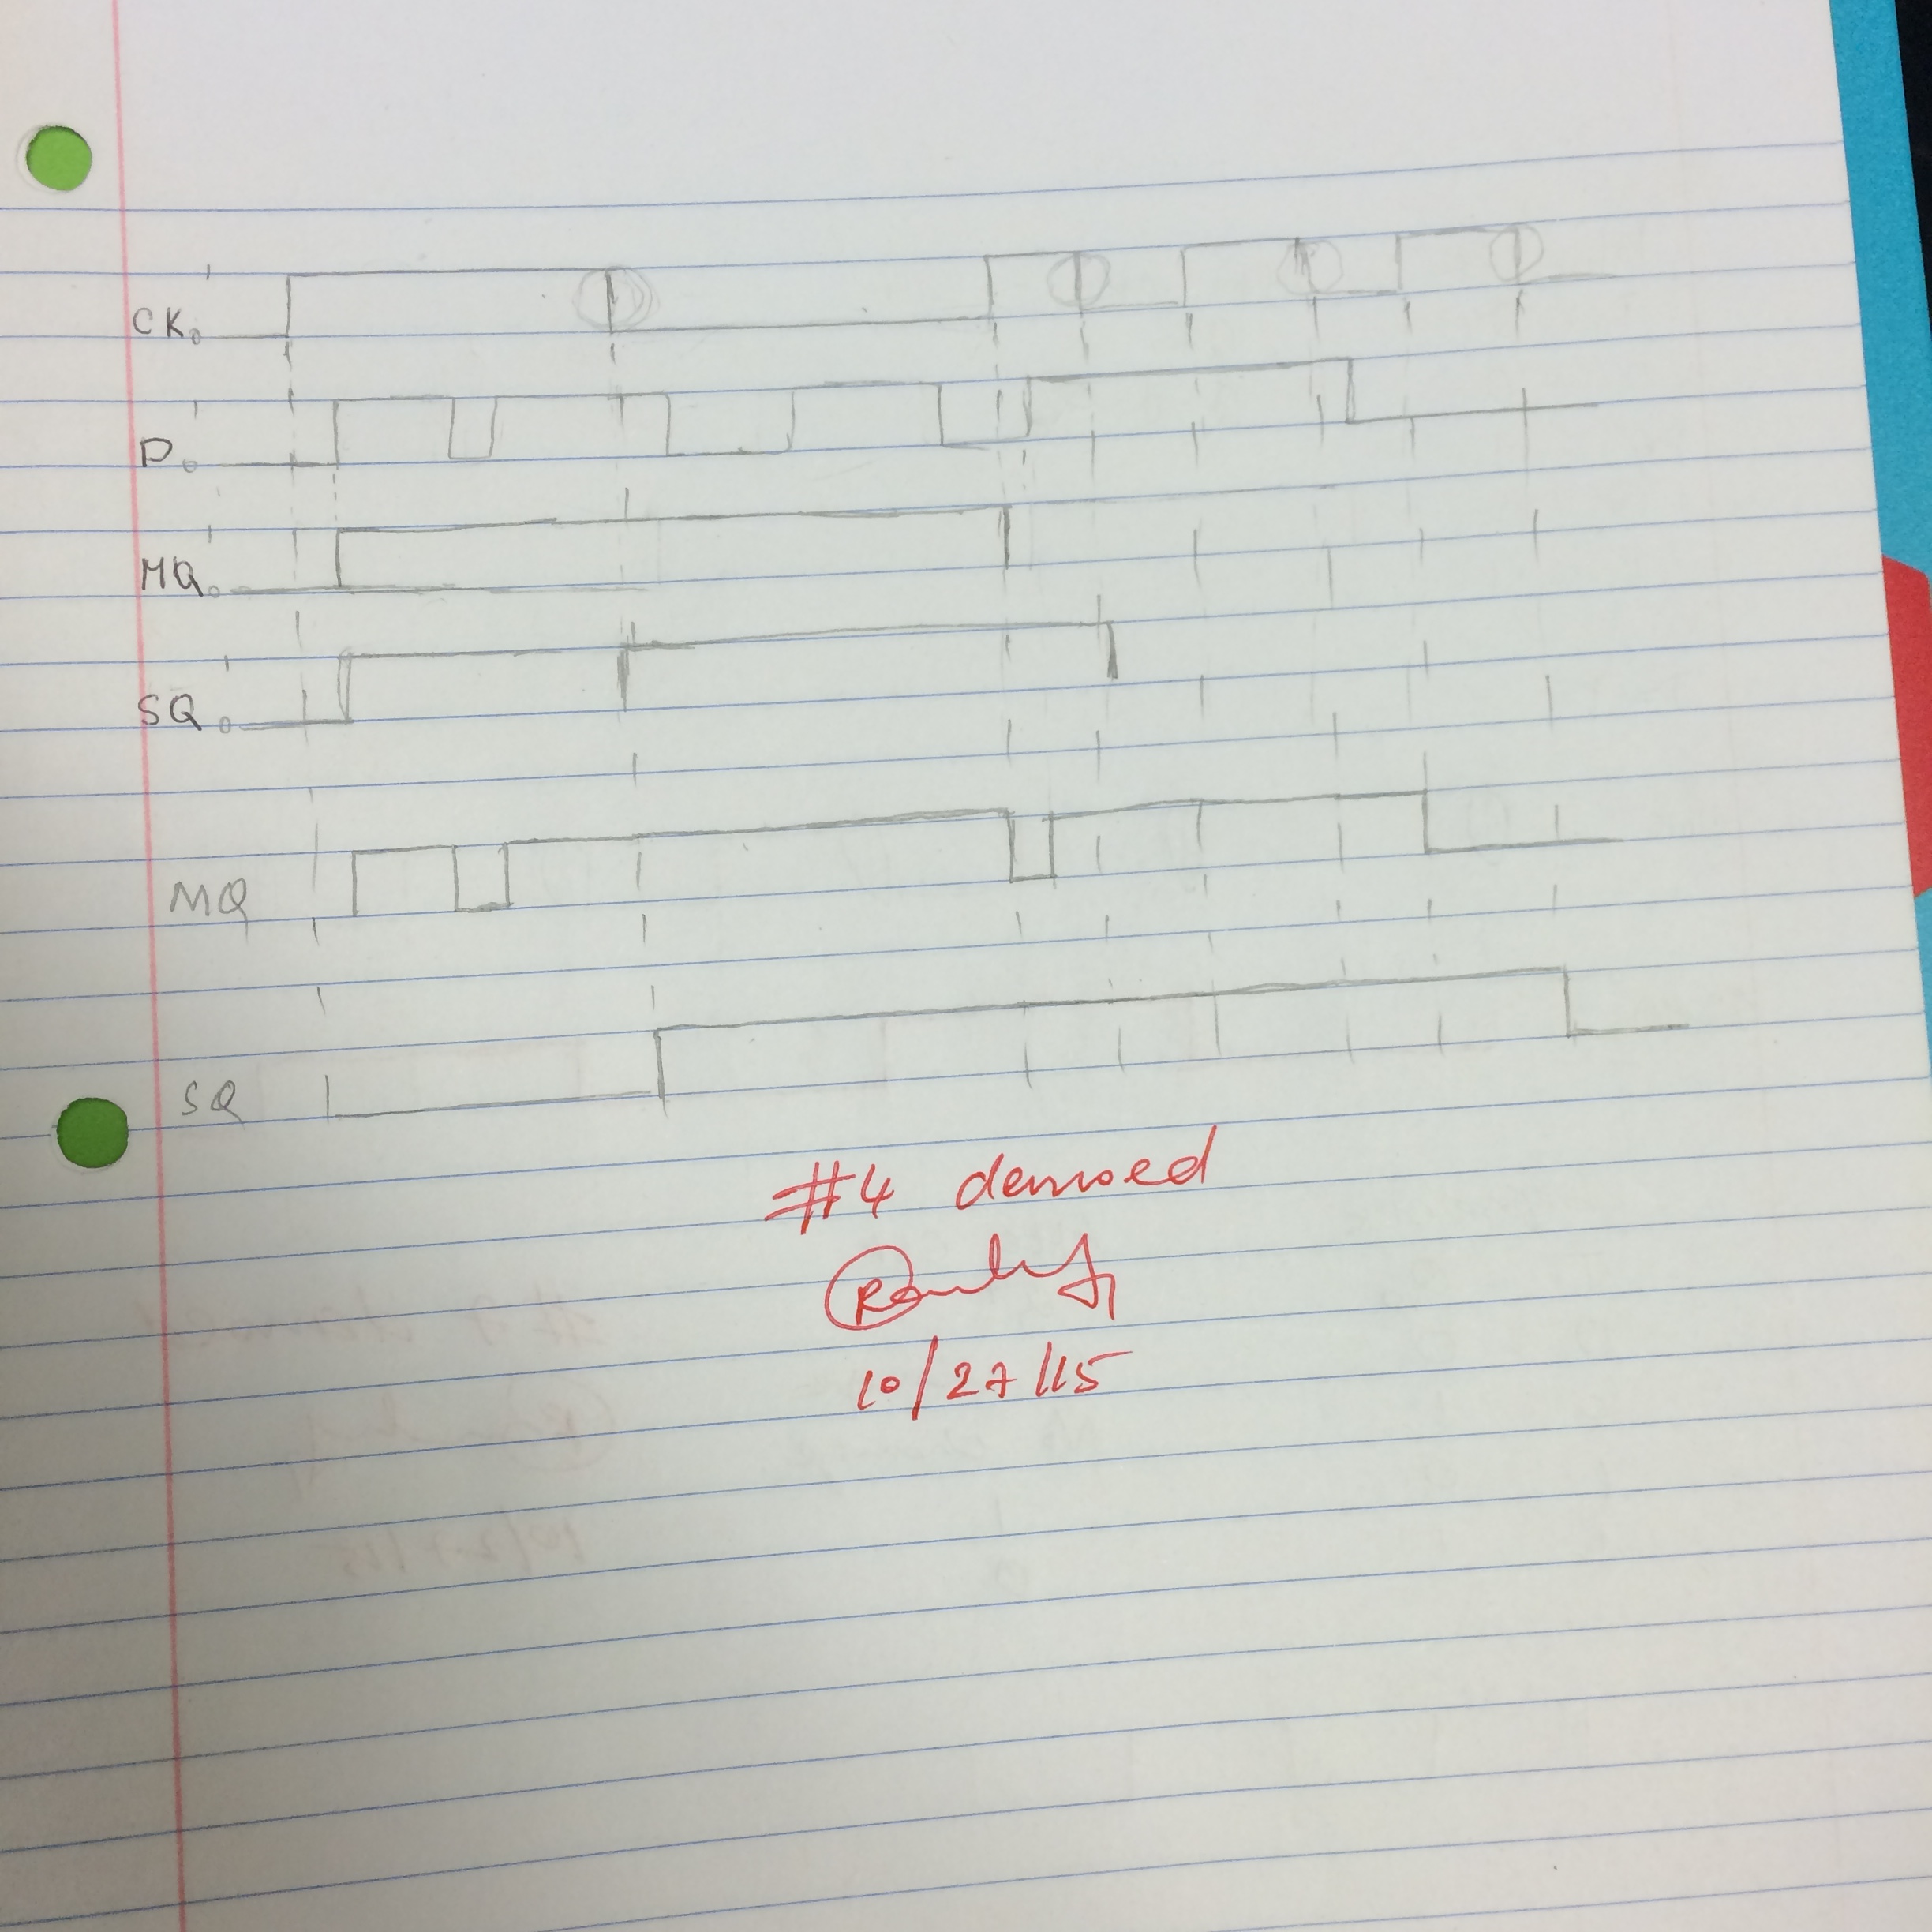 CK 0
D 0
MQ 0
SQ 0
MQ
SQ
#4 demoed
10/27/15